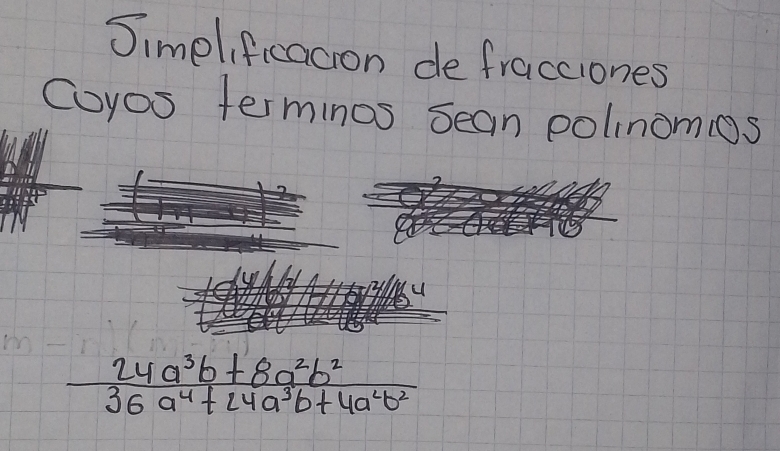 Simplificacion de fracciones
Coyos terminos sean polinomios
24a³b + 8a²b²
36a⁴ + 24a³b + 4a²b²